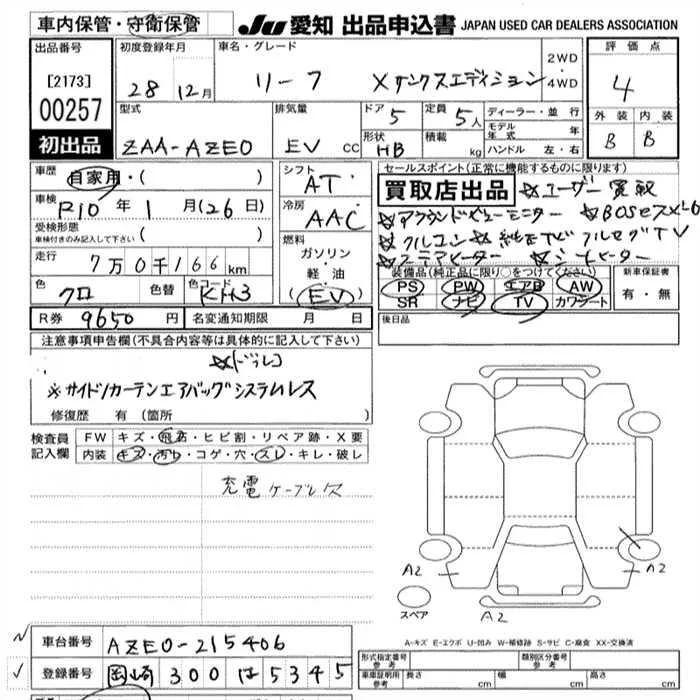 車内保管・守衛保管
JU 愛知 出品申込書 JAPAN USED CAR DEALERS ASSOCIATION
出品番号 初度登録年月 車名・グレード 2WD 評価点
[2173] 28年12月 リーフ Xサンクスエディション ・4WD 4
00257 型式 排気量 ドア 定員 ディーラー・並行 外装 内装
5 5人 モデル年式 年
初出品 ZAA-AZE0 EV cc 形状 積載 ハンドル 左・右 B B
HB kg
車歴 自家用・( ) シフト AT セールスポイント(正常に機能するものに限ります)
車検 R10年1月(26日) 冷房 AAC 買取店出品 ☆ユーザー買取
受検形態 ( ) ☆アラウンドビューモニター ☆BOSE
車検付きのみ記入して下さい 燃料 ☆クルコン ☆純正ナビフルセグTV
走行 7万0千166km ガソリン ☆ステアヒーター ☆シートヒーター
軽・油 装備品(純正品に限り○をつけてください) 新車保証書
色 クロ 色替 色コード KH3 (EV) PS PW エアB AW 有・無
SR ナビ TV カワシート
R券 9650円 名変通知期限 月 日 後日品
注意事項申告欄(不具合内容等は具体的に記入して下さい)
☆ドラレコ
※サイド/カーテンエアバッグシステムレス
修復歴 有 (箇所 )
検査員 FW キズ・飛石・ヒビ割・リペア跡・X要
記入欄 内装 キズ・汚れ・コゲ・穴・スレ・キレ・破レ
充電ケーブルレス
A2 A2
スペア A2
A-キズ E-エクボ U-凹み W-補修跡 S-サビ C-腐食 XX-交換済
車台番号 AZE0-215406 形式指定番号 参考 類別区分番号 参考
登録番号 岡崎 300 は 5345 車庫証明用 参考 長さ cm 幅 cm 高さ cm